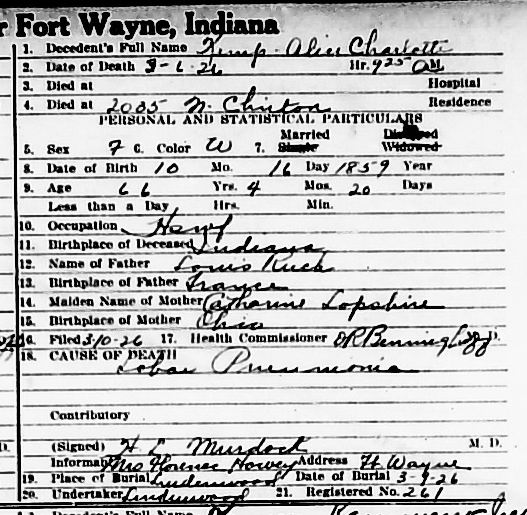 r Fort Wayne, Indiana
1. Decedent's Full Name Kemp Alice Charlotte
2. Date of Death 3-6-26 Hr. 9 25 AM.
3. Died at Hospital
4. Died at 2005 N. Clinton Residence
PERSONAL AND STATISTICAL PARTICULARS
Married Divorced
5. Sex F 6. Color W 7. Single Widowed
8. Date of Birth 10 Mo. 16 Day 1859 Year
9. Age 66 Yrs. 4 Mos. 20 Days
Less than a Day Hrs. Min.
10. Occupation Hswf
11. Birthplace of Deceased Indiana
12. Name of Father Louis Ruch
13. Birthplace of Father France
14. Maiden Name of Mother Catharine Lopshire
15. Birthplace of Mother Ohio
16. Filed 3-10-26 17. Health Commissioner D.
18. CAUSE OF DEATH
Lobar Pneumonia
Contributory
(Signed) H L Murdock M. D.
Informant Mrs Florence Harvey Address Ft Wayne
19. Place of Burial Lindenwood Date of Burial 3-9-26
20. Undertaker Lindenwood 21. Registered No. 261
Decedent's Full Name